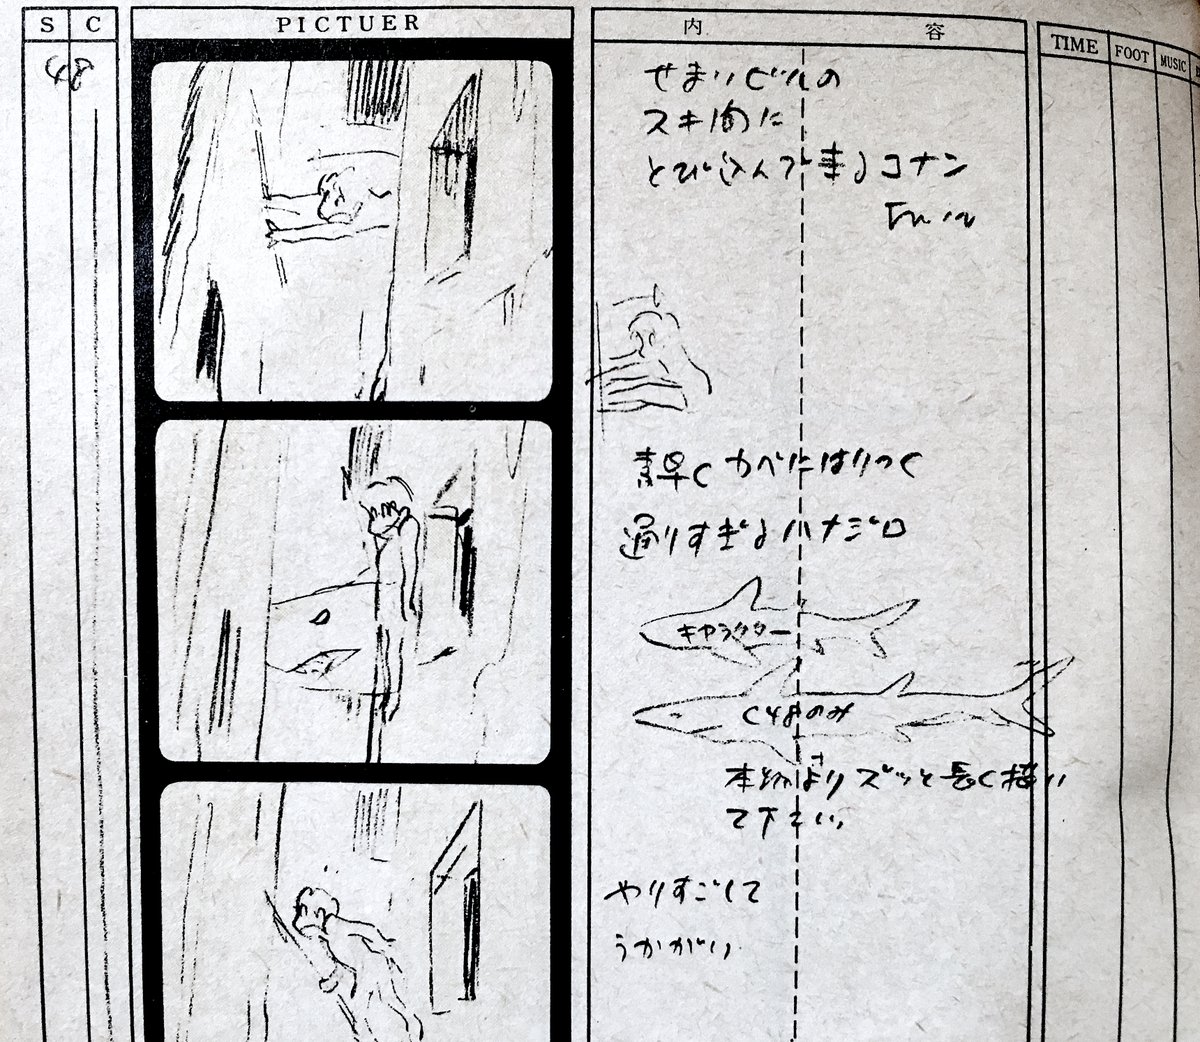 S C PICTUER 内容 TIME FOOT MUSIC
48
せまいビルの
スキ間に
とび込んで来るコナン
素早くカベにはりつく
通りすぎるハナジロ
キャラクター
C48のみ
本物よりズッと長く描い
て下さい。
やりすごして
うかがい